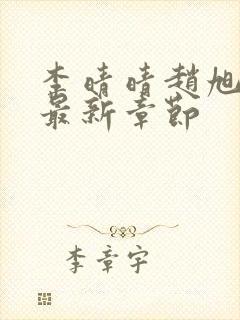 李晴晴趙旭
最新章節
李章宇